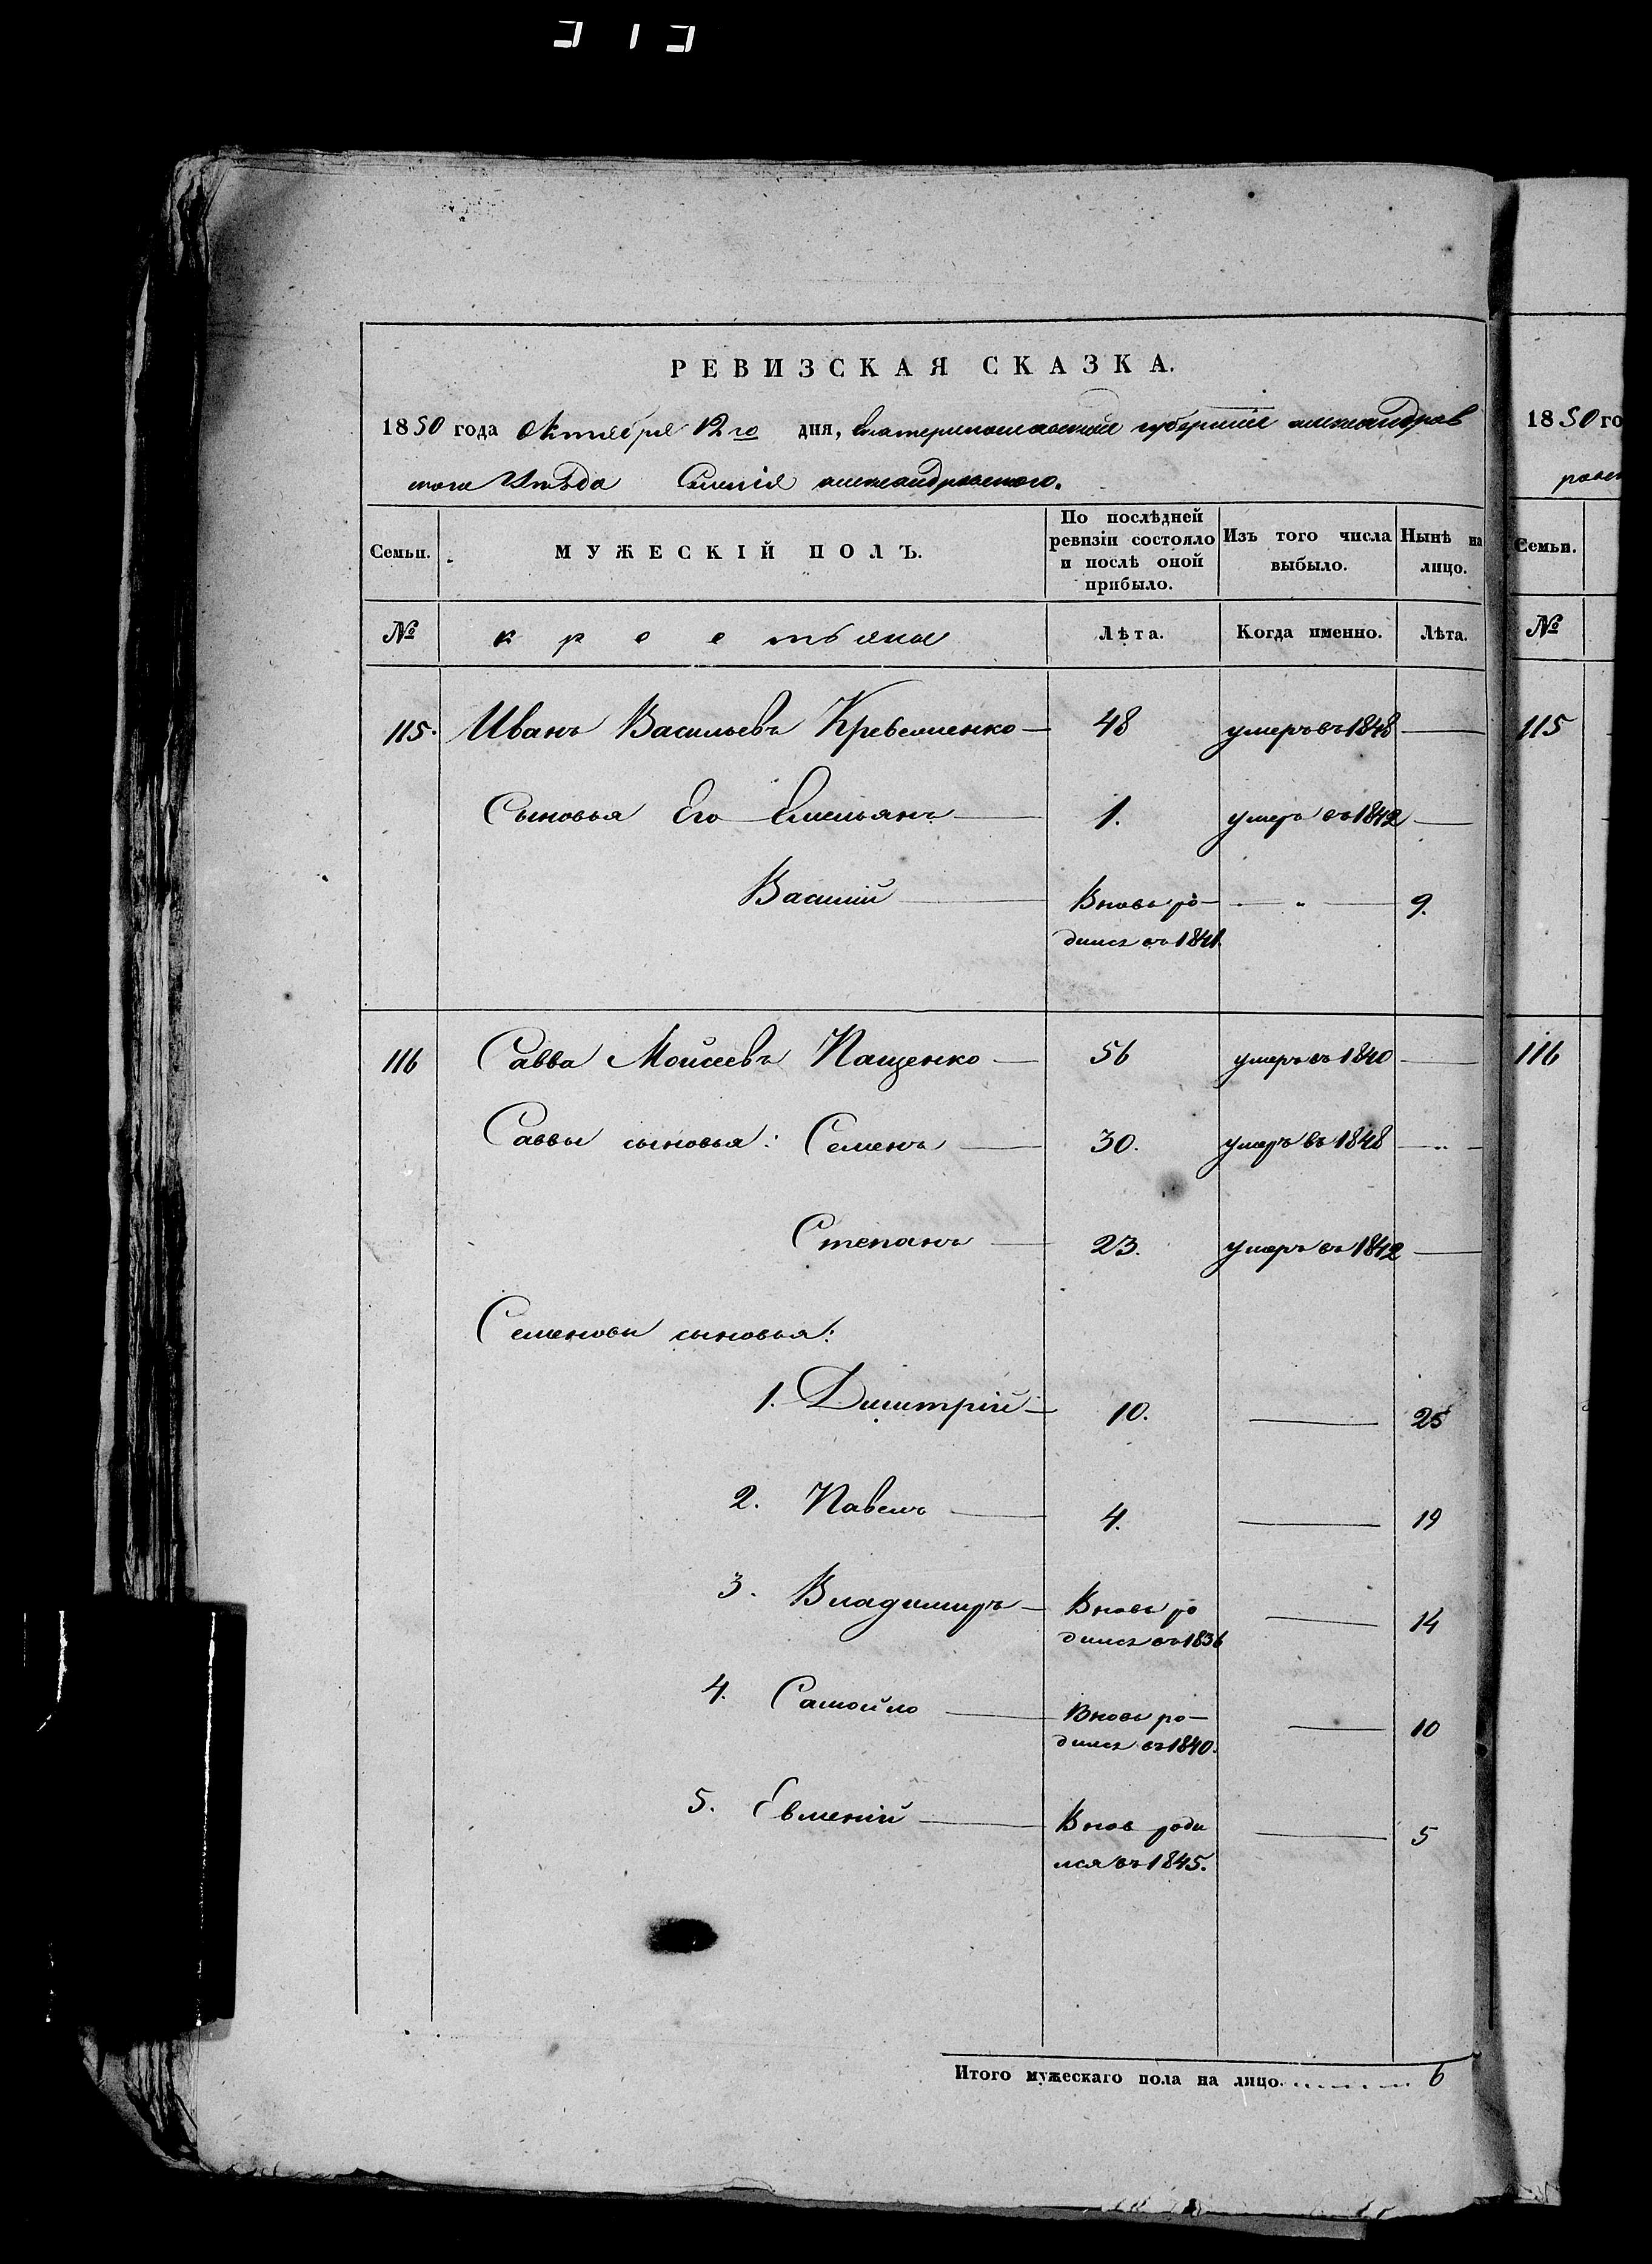 РЕВИЗСКАЯ СКАЗКА.
1850 года Октября 12го дня, Екатеринославской губернии Александров
скаго Уѣзда Селенія Александровского.
Семьи. МУЖЕСКІЙ ПОЛЪ. По послѣдней ревизіи состояло и послѣ оной прибыло. Изъ того числа выбыло. Нынѣ на лицо.
№ крестьяне Лѣта. Когда именно. Лѣта.
115. Иванъ Васильевъ 48 умеръ въ 1848
Сыновья Его Емельянъ 1. умеръ въ 1842
Василій Вновь ро- 9.
дился въ 1841
116 Савва Моисеевъ Пащенко 56 умеръ въ 1840
Саввы сыновья: Семенъ 30. умеръ въ 1848
Степанъ 23. умеръ въ 1842
Семеновы сыновья:
1. Димитрій 10. 25
2. Павелъ 4. 19
3. Владимиръ Вновь ро 14
дился въ 1836
4. Самойло Вновь ро- 10
дился въ 1840.
5. Евменій Внов роди 5
лся въ 1845.
Итого мужескаго пола на лицо. 6
1850 го
Семьи.
№
115
116